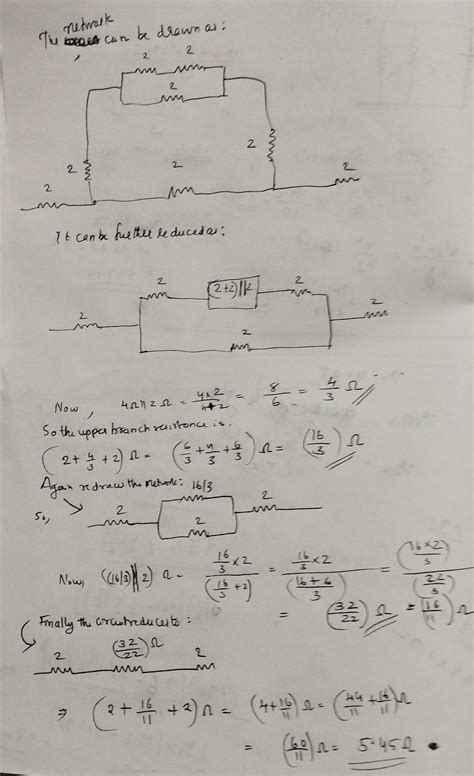 network
The can be drawn as:
2 2
2
2
2
2
2
2
It can be further reduced as:
2 (2+2)||2 2
2
2
2
Now, 4Ω||2Ω = 4×2/4+2 = 8/6 = 4/3 Ω
So the upper branch resistance is:
(2 + 4/3 + 2) Ω = (6/3 + 4/3 + 6/3) Ω = (16/3) Ω
Again redraw the network: 16/3
So, 2 2
2
Now, ((16/3)||2) Ω = (16/3 × 2)/(16/3 + 2) = (16/3 × 2)/((16+6)/3) = ((16×2)/3)/(22/3)
= (32/22) Ω = (16/11) Ω
Finally the circuit reduces to:
2 (32/22) Ω 2
⇒ (2 + 16/11 + 2) Ω = (4 + 16/11) Ω = (44/11 + 16/11) Ω
= (60/11) Ω = 5.45 Ω